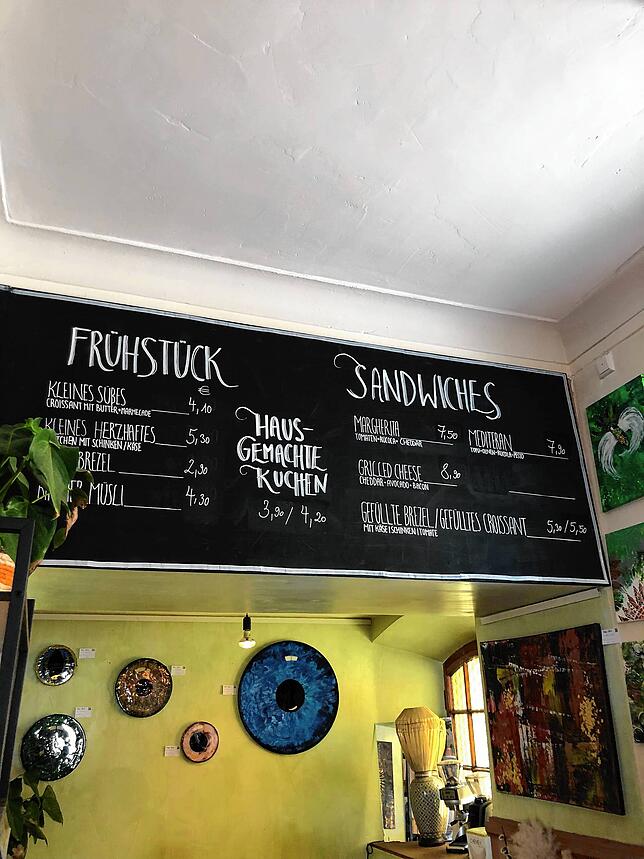 FRÜHSTÜCK
€
KLEINES SÜßES 4,10
CROISSANT MIT BUTTER+MARMELADE
KLEINES HERZHAFTES 5,30
MIT SCHINKEN/KÄSE
BREZEL 2,30
MÜSLI 4,30
HAUS-
GEMACHTE
KUCHEN
3,90 / 4,20
SANDWICHES
MARGHERITA 7,50
TOMATEN-RUCOLA-CHEDDAR
MEDITERAN 7,90
GRILLED CHEESE 8,90
CHEDDAR-AVOCADO-BACON
GEFÜLLTE BREZEL/GEFÜLLTES CROISSANT 5,30/5,50
MIT KÄSE|SCHINKEN|TOMATE